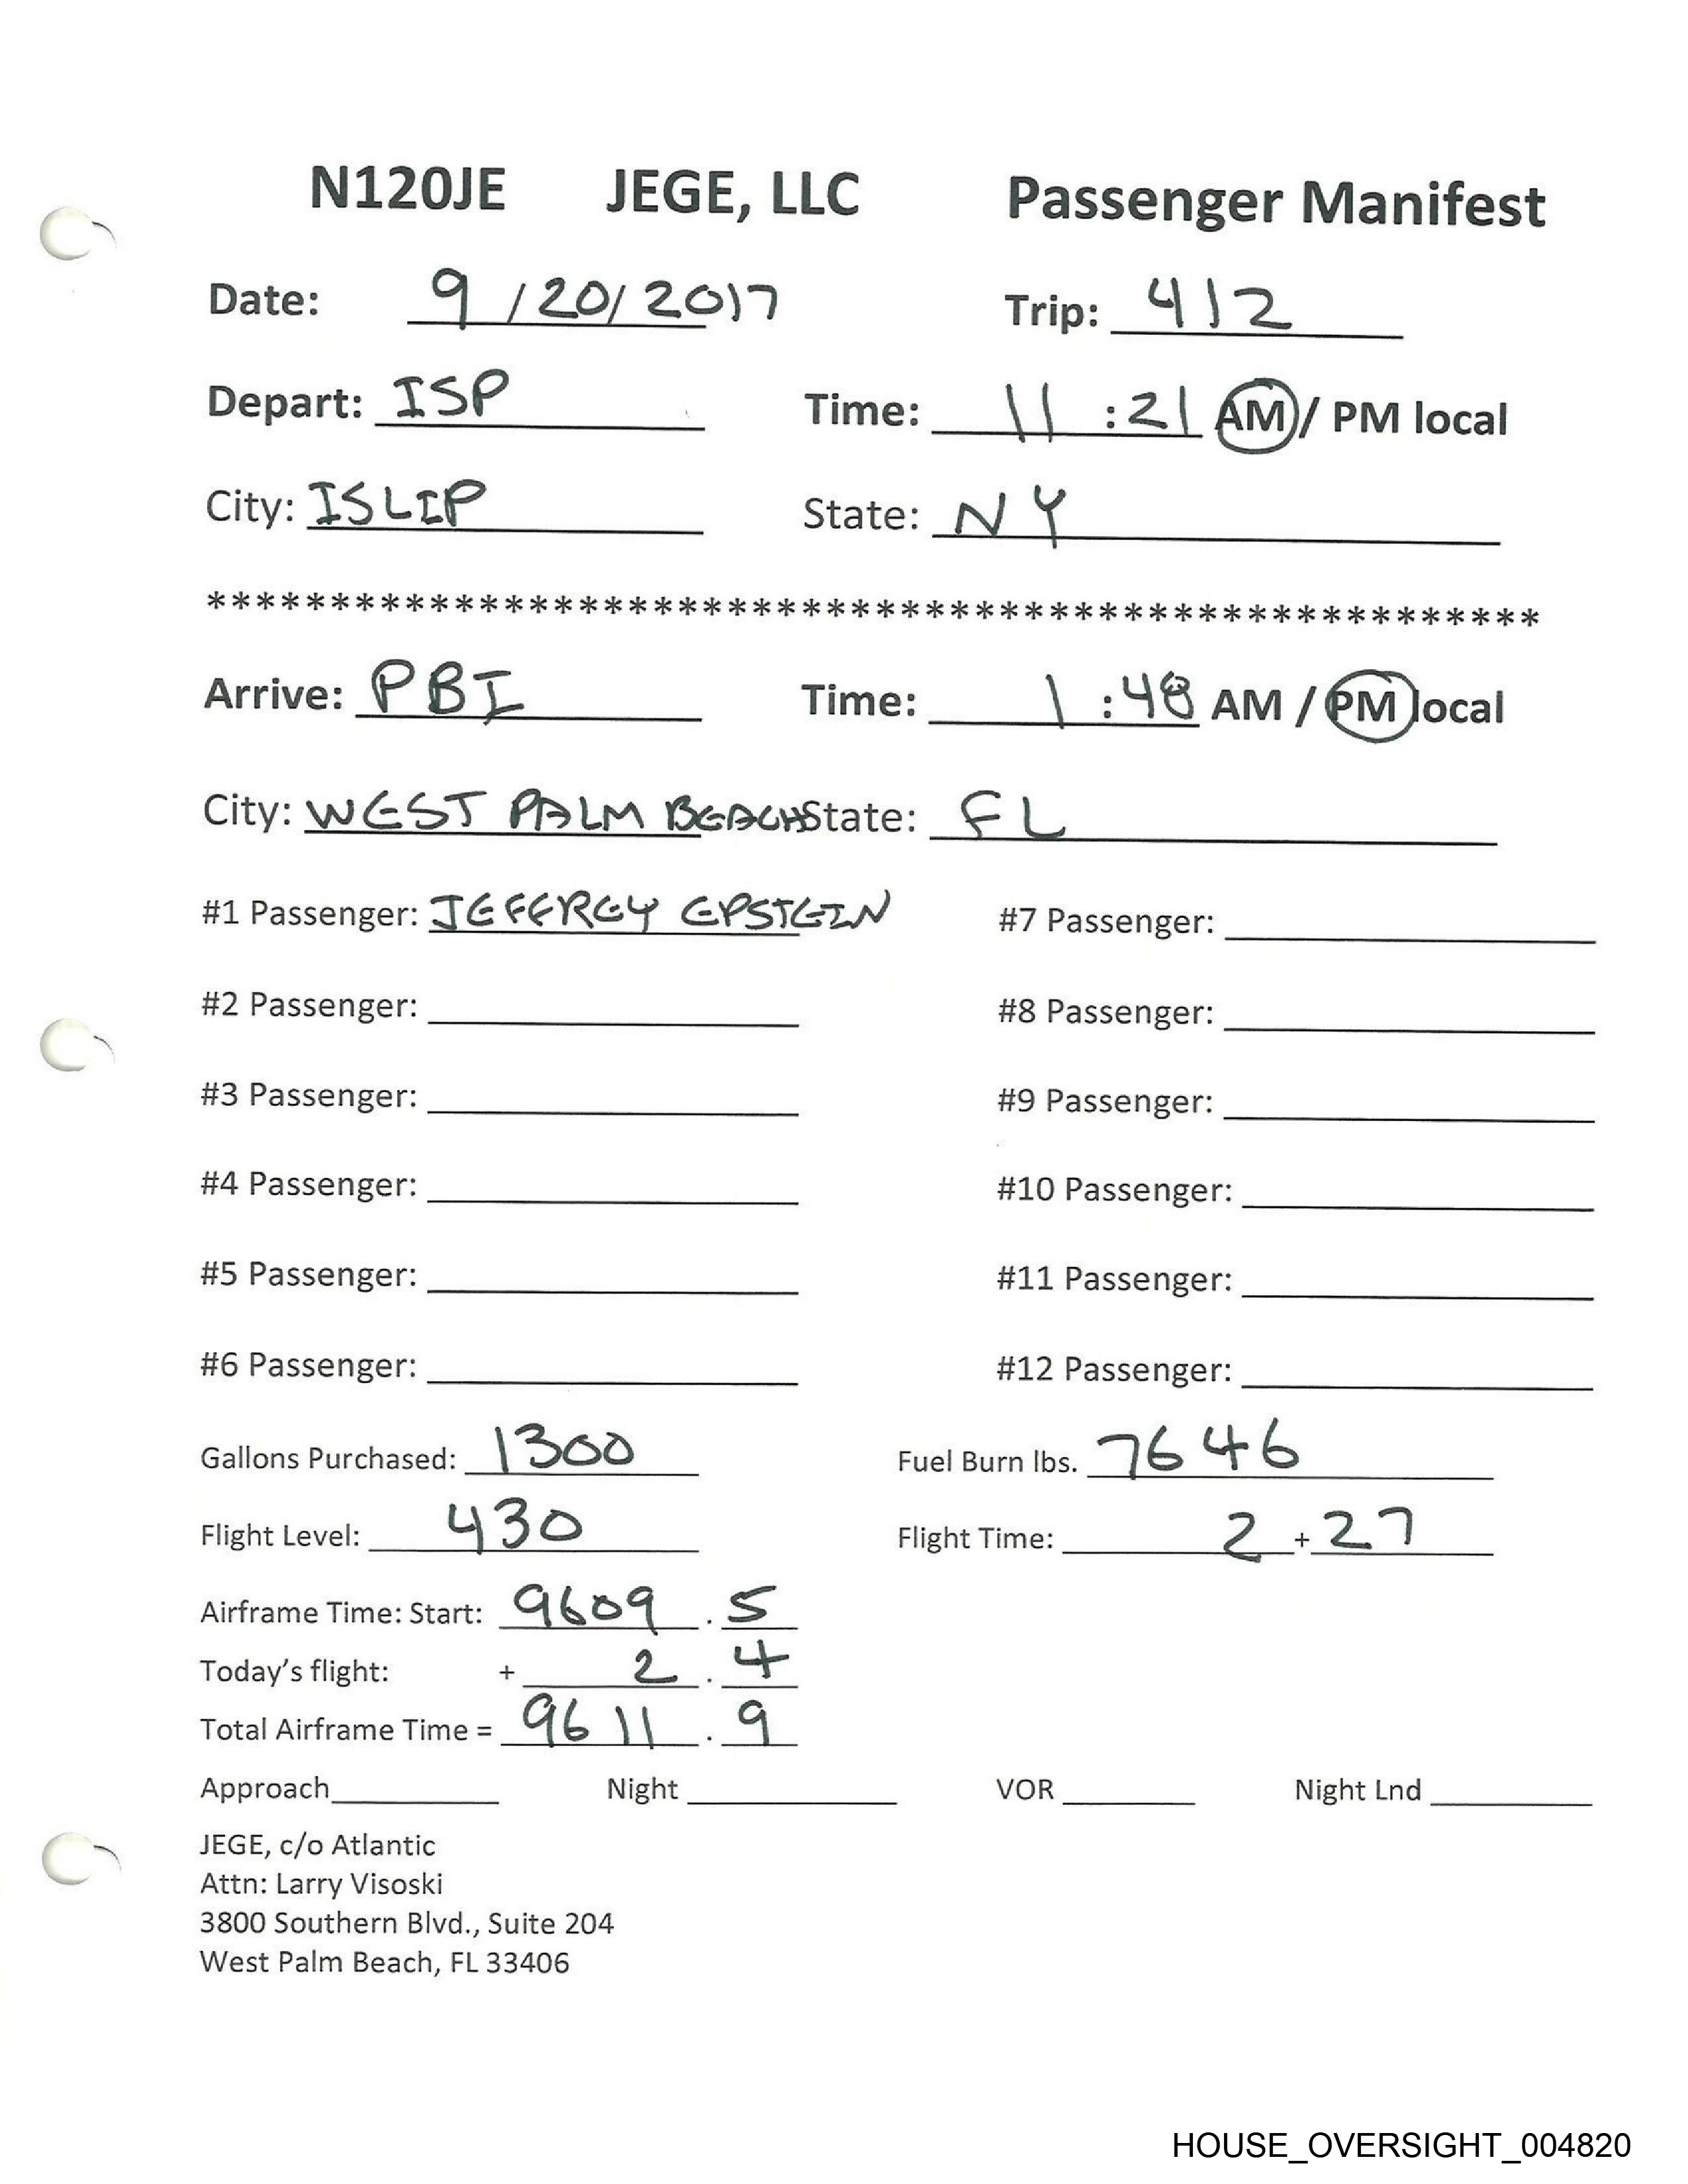 N120JE JEGE, LLC Passenger Manifest
Date: 9 / 20 / 2017 Trip: 412
Depart: ISP Time: 11 : 21 AM / PM local
City: ISLIP State: NY
******************************************************
Arrive: PBI Time: 1 : 48 AM / PM local
City: WEST PALM BEACH State: FL
#1 Passenger: JEFFREY EPSTEIN #7 Passenger:
#2 Passenger: #8 Passenger:
#3 Passenger: #9 Passenger:
#4 Passenger: #10 Passenger:
#5 Passenger: #11 Passenger:
#6 Passenger: #12 Passenger:
Gallons Purchased: 1300 Fuel Burn lbs. 7646
Flight Level: 430 Flight Time: 2 + 27
Airframe Time: Start: 9609 . 5
Today's flight: + 2 . 4
Total Airframe Time = 9611 . 9
Approach Night VOR Night Lnd
JEGE, c/o Atlantic
Attn: Larry Visoski
3800 Southern Blvd., Suite 204
West Palm Beach, FL 33406
HOUSE_OVERSIGHT_004820